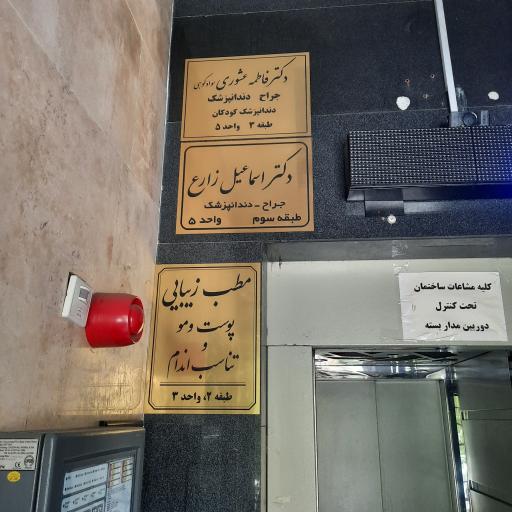 دکتر فاطمه عشوری سوادکوهی
جراح دندانپزشک
دندانپزشک کودکان
طبقه ۳ واحد ۵
دکتر اسماعیل زارع
جراح - دندانپزشک
طبقه سوم واحد ۵
مطب زیبایی
پوست و مو
و
تناسب اندام
طبقه ۲، واحد ۳
کلیه مشاعات ساختمان
تحت کنترل
دوربین مدار بسته